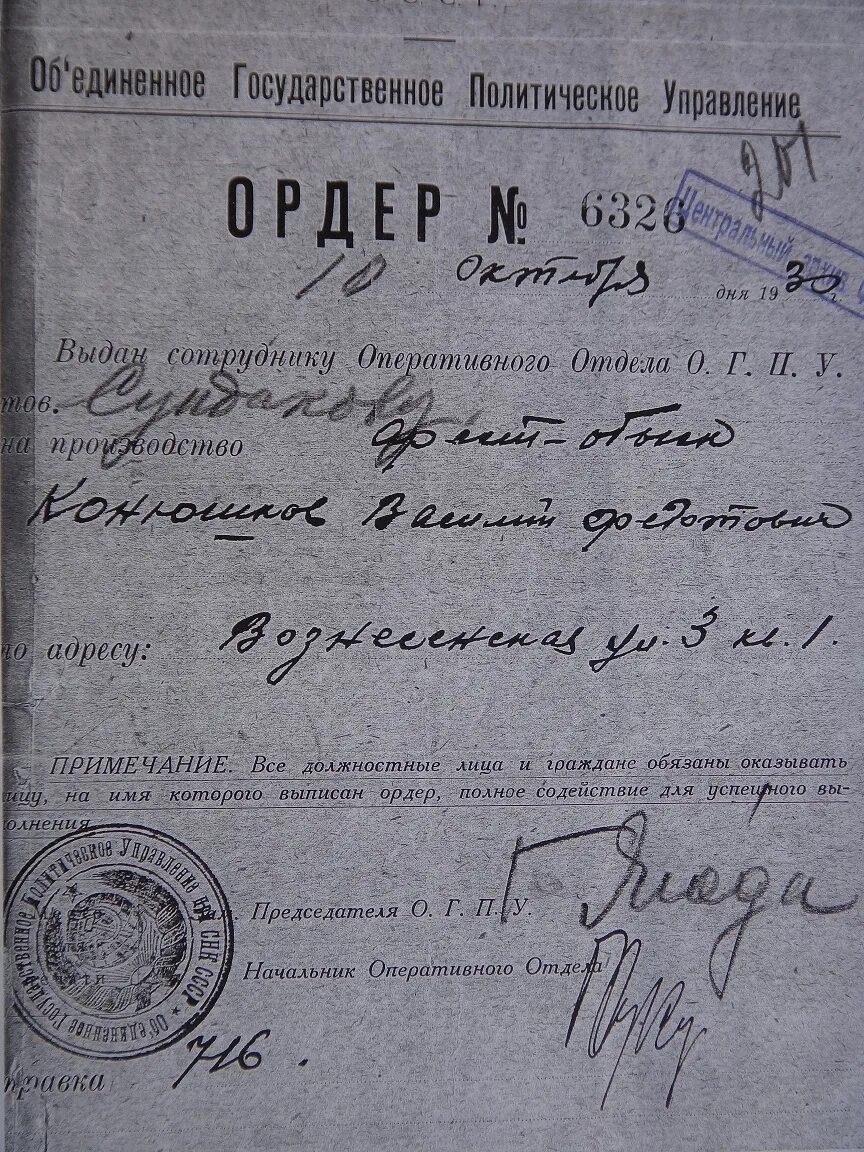 Об'единенное Государственное Политическое Управление
201
ОРДЕР № 6326
Центральный архив
10 Октября дня 1930
Выдан сотруднику Оперативного Отдела О. Г. П. У.
тов. Сундакову
на производство арест-обыск
Конюшков Василий Федотович
по адресу: Вознесенская ул. 3 кв. 1.
ПРИМЕЧАНИЕ. Все должностные лица и граждане обязаны оказывать
лицу, на имя которого выписан ордер, полное содействие для успешного вы-
полнения.
Об'единенное Государственное Политическое Управление при СНК СССР
Зам. Председателя О. Г. П. У. Ягода
Начальник Оперативного Отдела
правка 716.